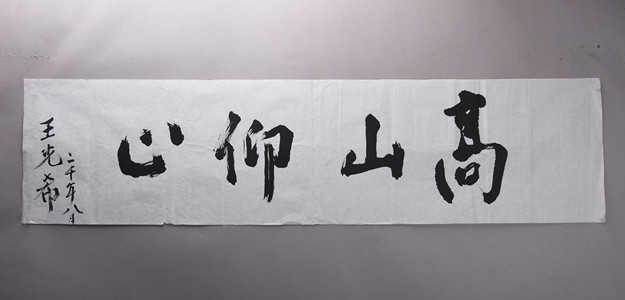 高山仰止
二千年八月
王光希